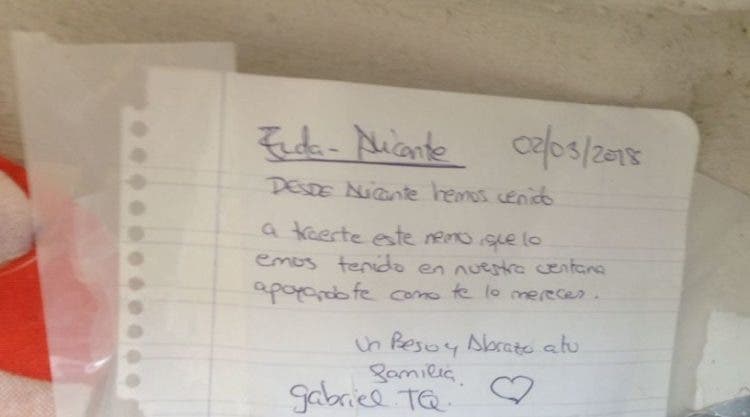 Elda - Alicante 02/03/2018
DESDE Alicante hemos venido
a traerte este nemo, que lo
emos tenido en nuestra ventana
apoyandote como te lo mereces.
Un Beso y Abrazo a tu
familia.
gabriel. TQ.